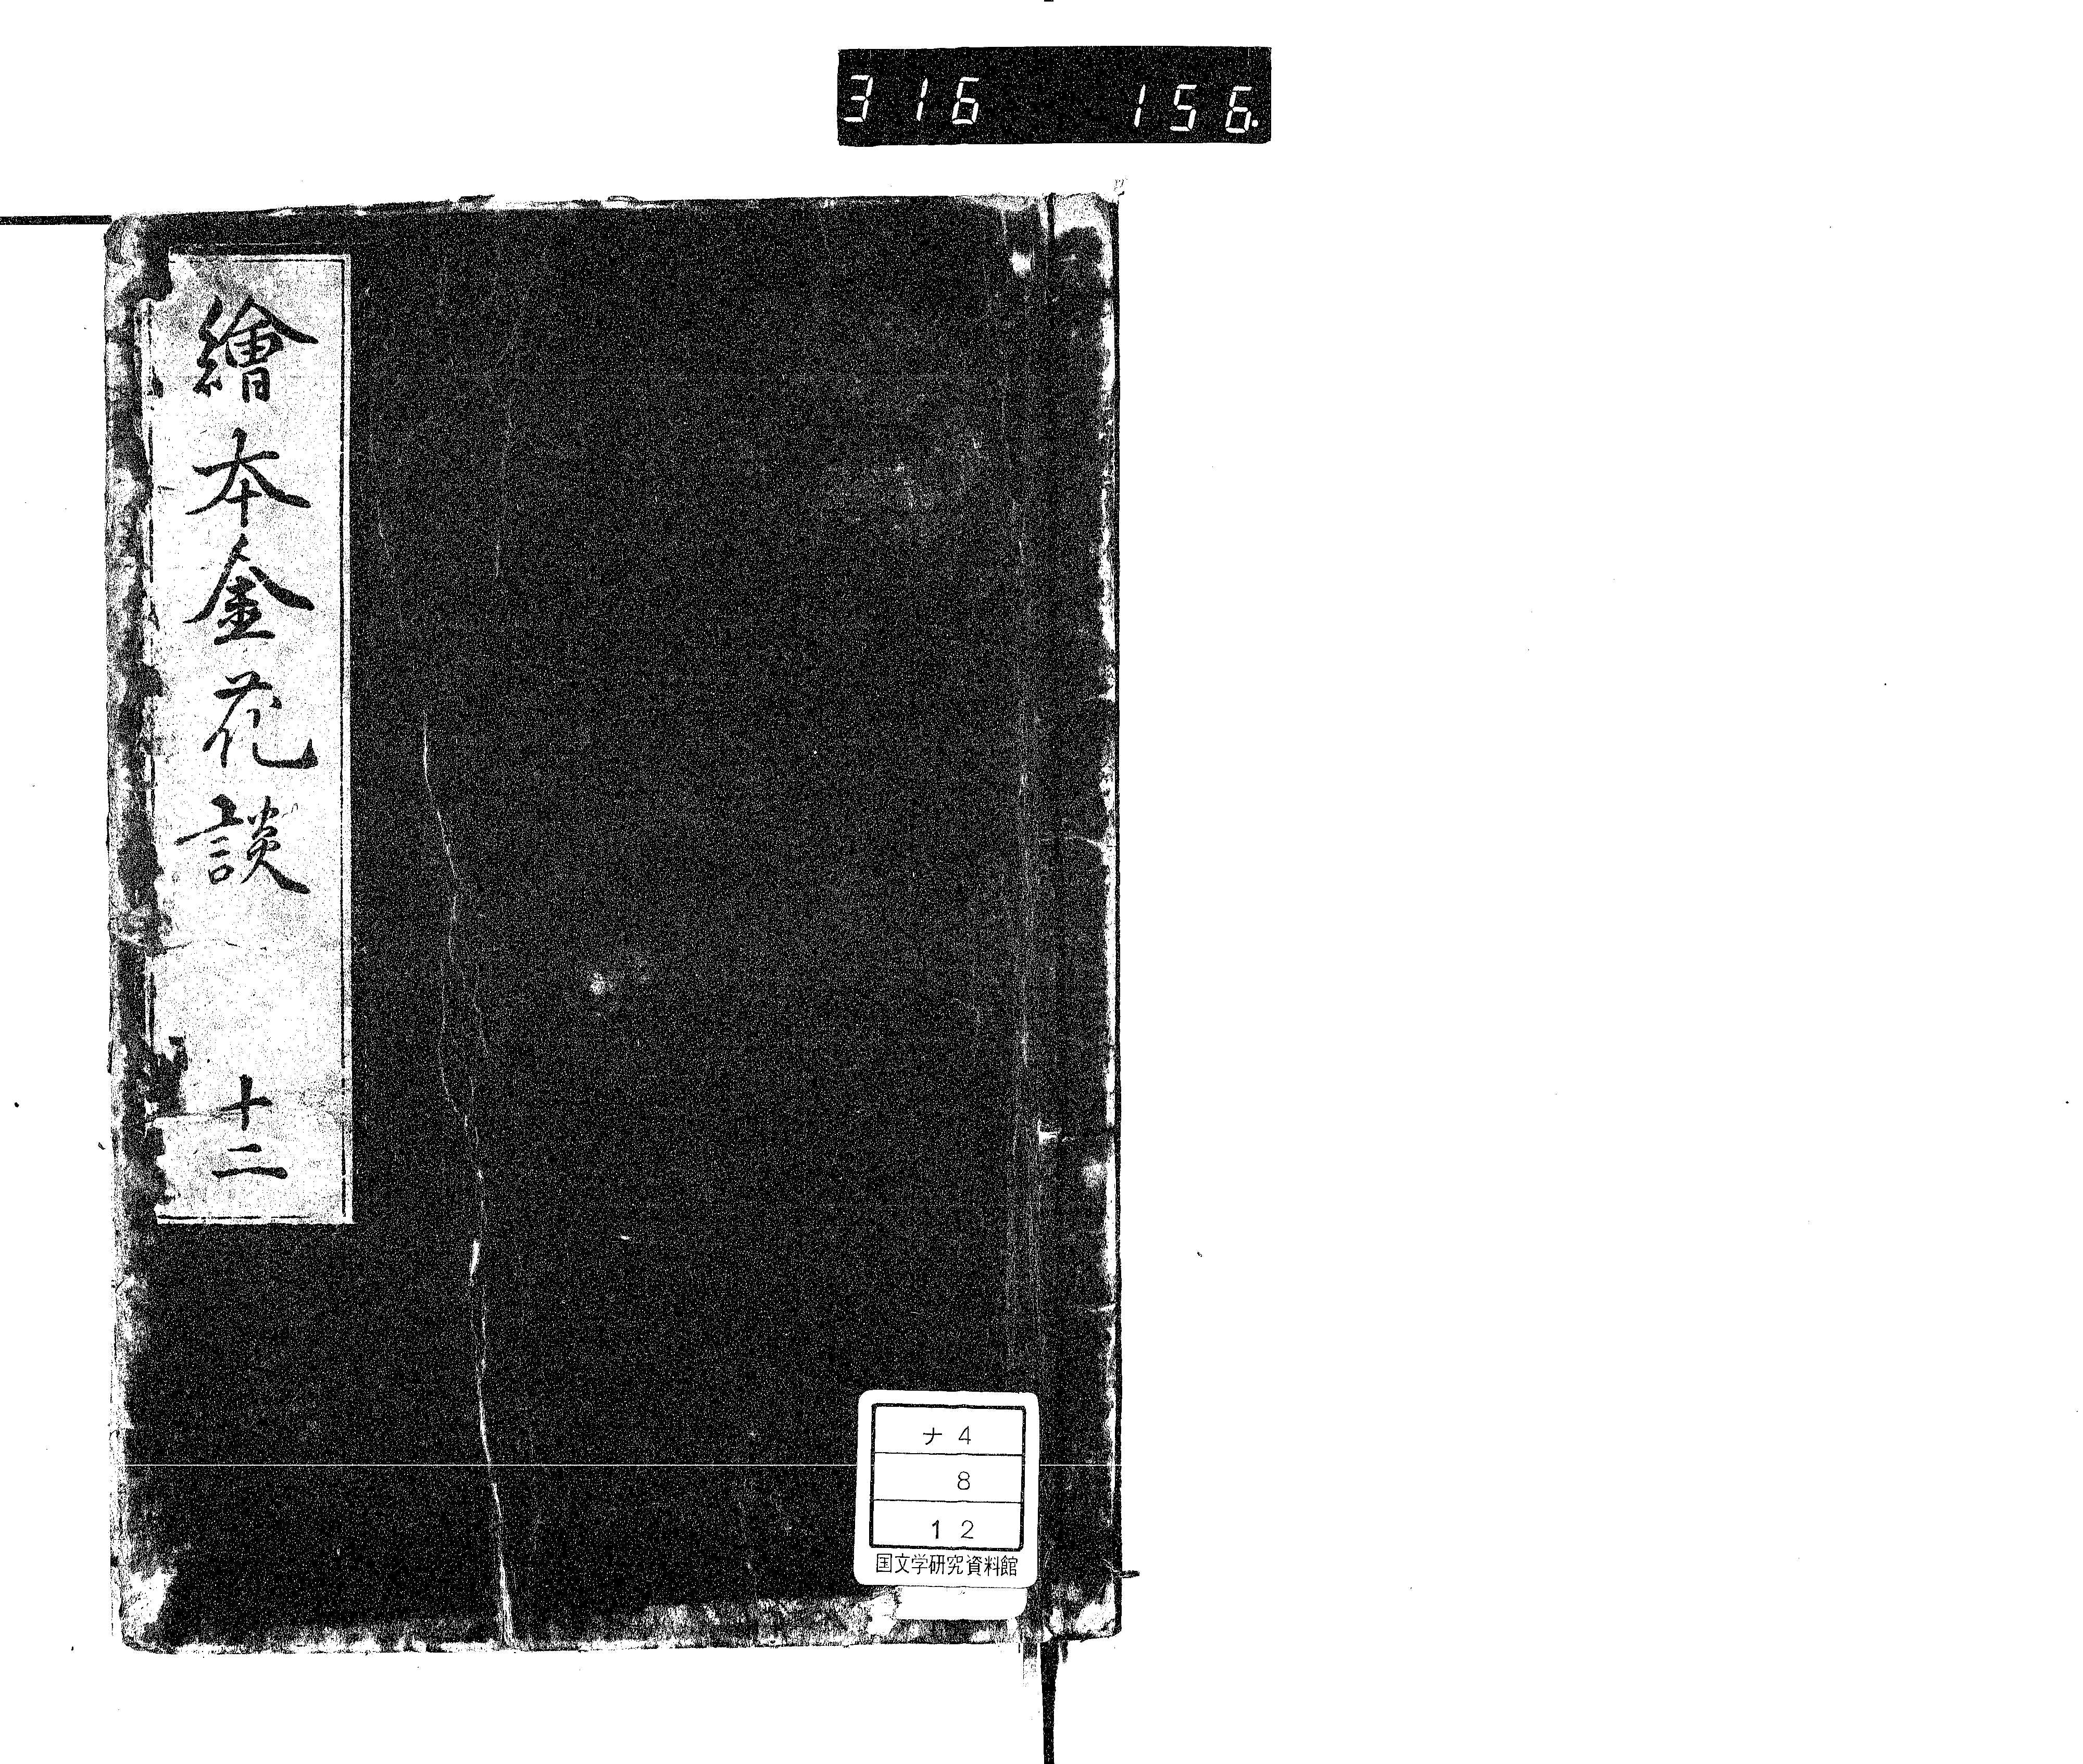 316 156.
繪本金花談 十二
ナ 4
8
12
国文学研究資料館